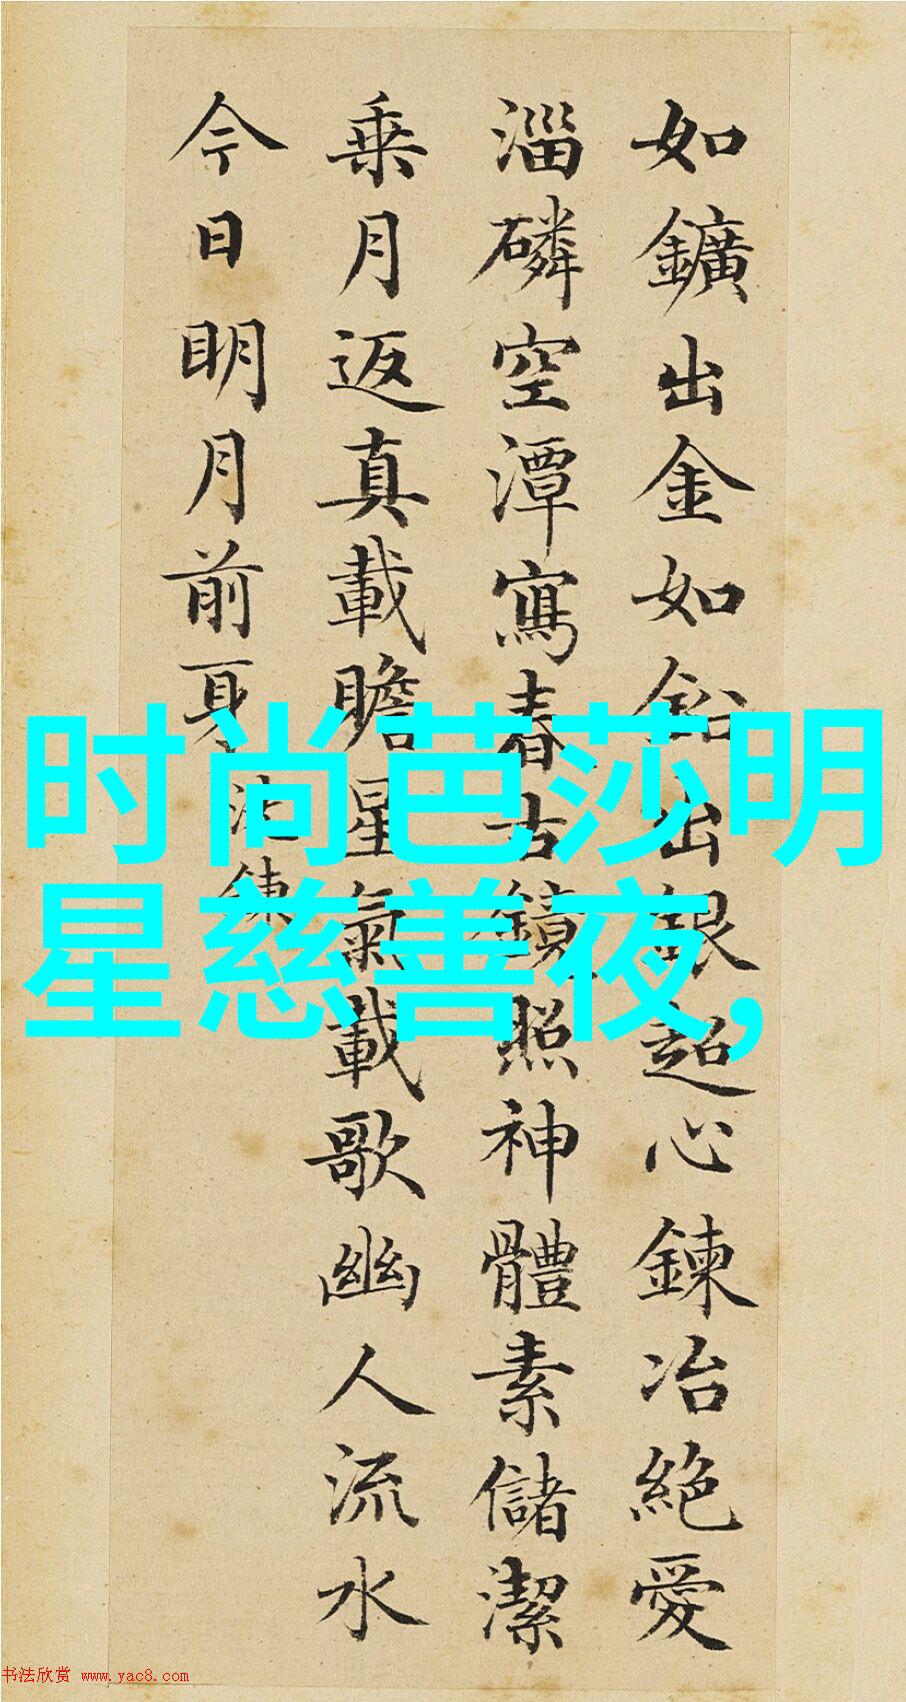 如鑛出金如鉛出銀超心鍊冶絕愛
淄磷空潭寫春古鏡照神體素儲潔
乗月返真載瞻星氣載歌幽人流水
今日明月前身洗鍊
时尚芭莎明
星慈善夜,
书法欣赏 www.yac8.com